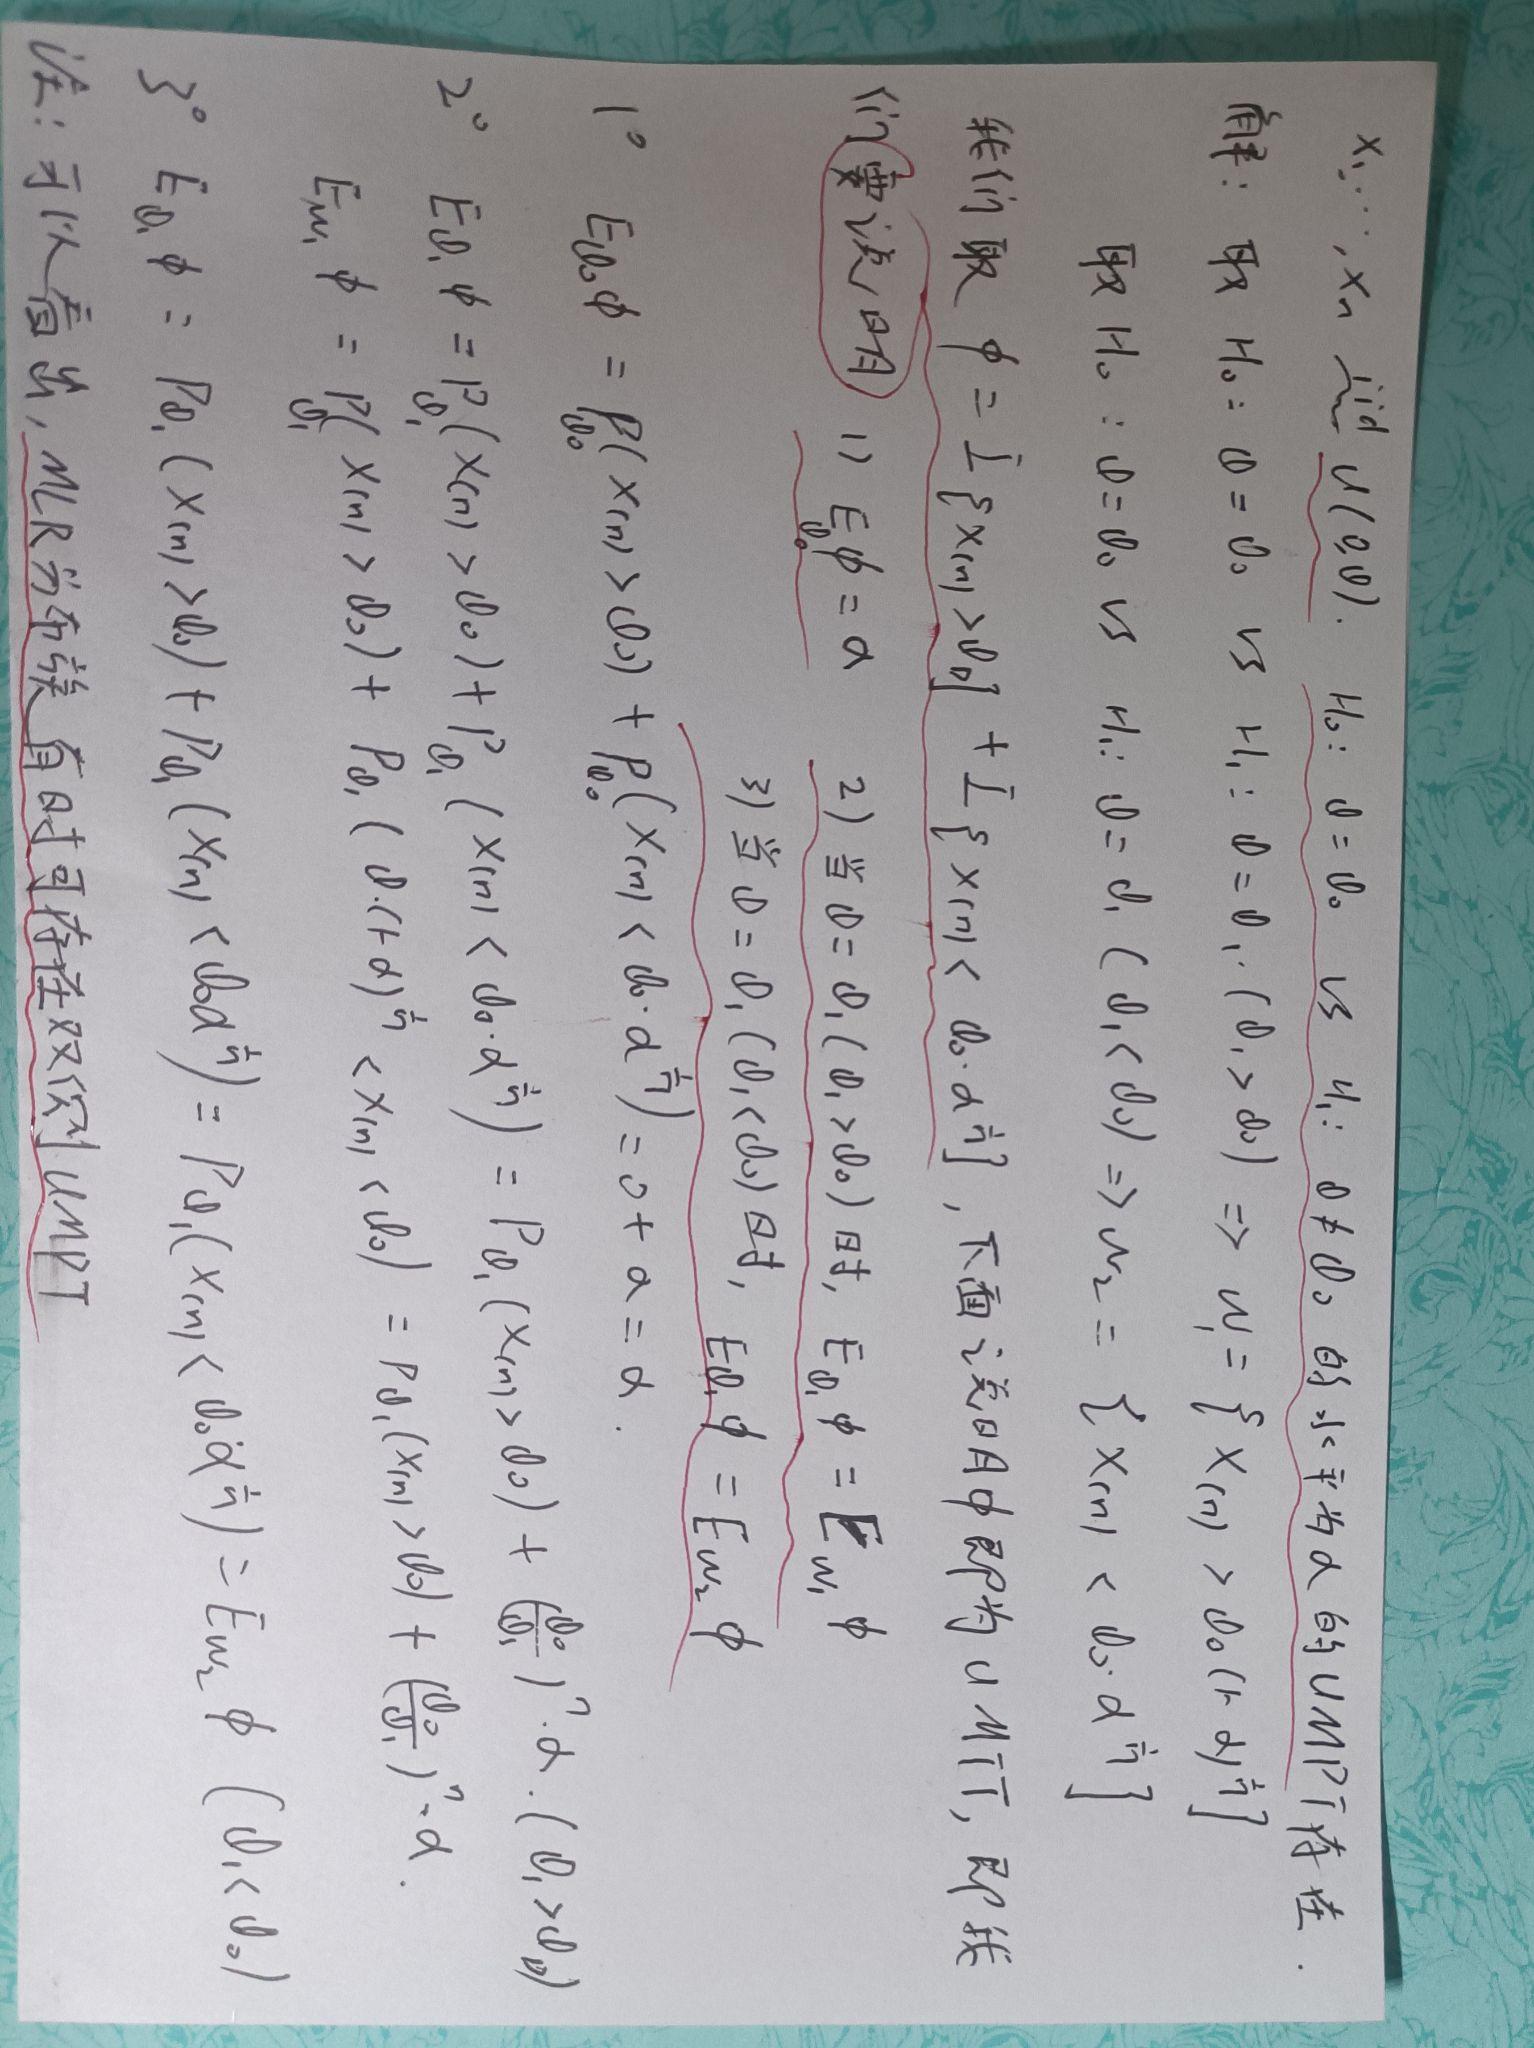 x₁…, xₙ iid U(0,θ). H₀: θ=θ₀ vs H₁: θ≠θ₀ 的水平为α的UMPT存在.
解: 取 H₀: θ=θ₀ vs H₁: θ=θ₁ (θ₁>θ₀) => W₁={X₍ₙ₎>θ₀(1-α)^{1/n}}
取 H₀: θ=θ₀ vs H₁: θ=θ₁ (θ₁<θ₀) => W₂={X₍ₙ₎<θ₀·α^{1/n}}
我们取 φ=I{X₍ₙ₎>θ₀}+I{X₍ₙ₎<θ₀·α^{1/n}}, 下面说明φ即为UMPT, 即我
们要说明 1) E_{θ₀}φ=α 2) 当θ=θ₁(θ₁>θ₀)时, E_{θ₁}φ=E_{W₁}φ
3) 当θ=θ₁(θ₁<θ₀)时, E_{θ₁}φ=E_{W₂}φ
1° E_{θ₀}φ=P_{θ₀}(X₍ₙ₎>θ₀)+P_{θ₀}(X₍ₙ₎<θ₀·α^{1/n})=0+α=α.
2° E_{θ₁}φ=P_{θ₁}(X₍ₙ₎>θ₀)+P_{θ₁}(X₍ₙ₎<θ₀·α^{1/n})=P_{θ₁}(X₍ₙ₎>θ₀)+(θ₀/θ₁)ⁿ·α.(θ₁>θ₀)
E_{W₁}φ=P_{θ₁}(X₍ₙ₎>θ₀)+P_{θ₁}(θ·(1-α)^{1/n}<X₍ₙ₎<θ₀)=P_{θ₁}(X₍ₙ₎>θ₀)+(θ₀/θ₁)ⁿ·α.
3° E_{θ₁}φ=P_{θ₁}(X₍ₙ₎>θ₀)+P_{θ₁}(X₍ₙ₎<θ₀α^{1/n})=P_{θ₁}(X₍ₙ₎<θ₀α^{1/n})=E_{W₂}φ (θ₁<θ₀)
注: 可以看出, MLR分布族有时可存在双侧UMPT